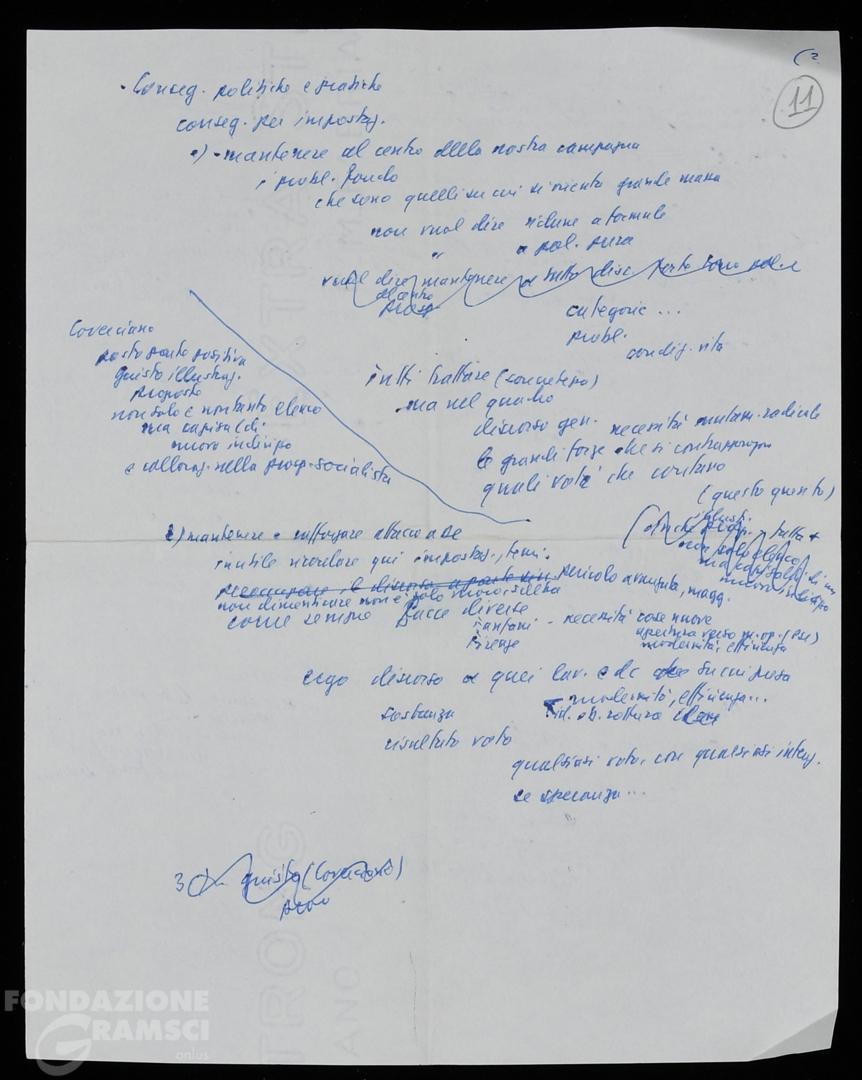 11
. Conseg. politiche e pratiche
conseg. per impostaz.
1) - mantenere al centro della nostra campagna
i probl. fondo
che sono quelli su cui si orienta grande massa
non vuol dire ridurre a formule
" a pol. pura
vuol dire mantenere
al centro
categorie ...
probl.
condiz. vita
Covecciano
posto parte positiva
giusto illustraz.
proposte
non solo e non tanto elenco
ma capisaldi
nuovo indirizzo
e collocaz. nella prosp. socialista
tutti trattare (concretezza)
ma nel quadro
discorso gen. necessità mutam. radicale
le grandi forze che si contrappongono
quali voti che contano
(questo quento)
non solo elenco
ma capisaldi di un
nuovo indirizzo
2) mantenere e rafforzare attacco a DC
inutile ricordare qui impostaz., temi.
pericolo avanzata, magg.
non dimenticare non è solo
come sempre facce diverse
Fanfani - necessità cose nuove
Firenze
apertura verso
modernità, efficienza
ergo discorso a quei lav. e dc su cui presa
modernità, efficienza...
sostanza
risultato voto
qualsiasi voto, con qualsiasi intenz.
se speranza ...
3
FONDAZIONE
GRAMSCI
onlus